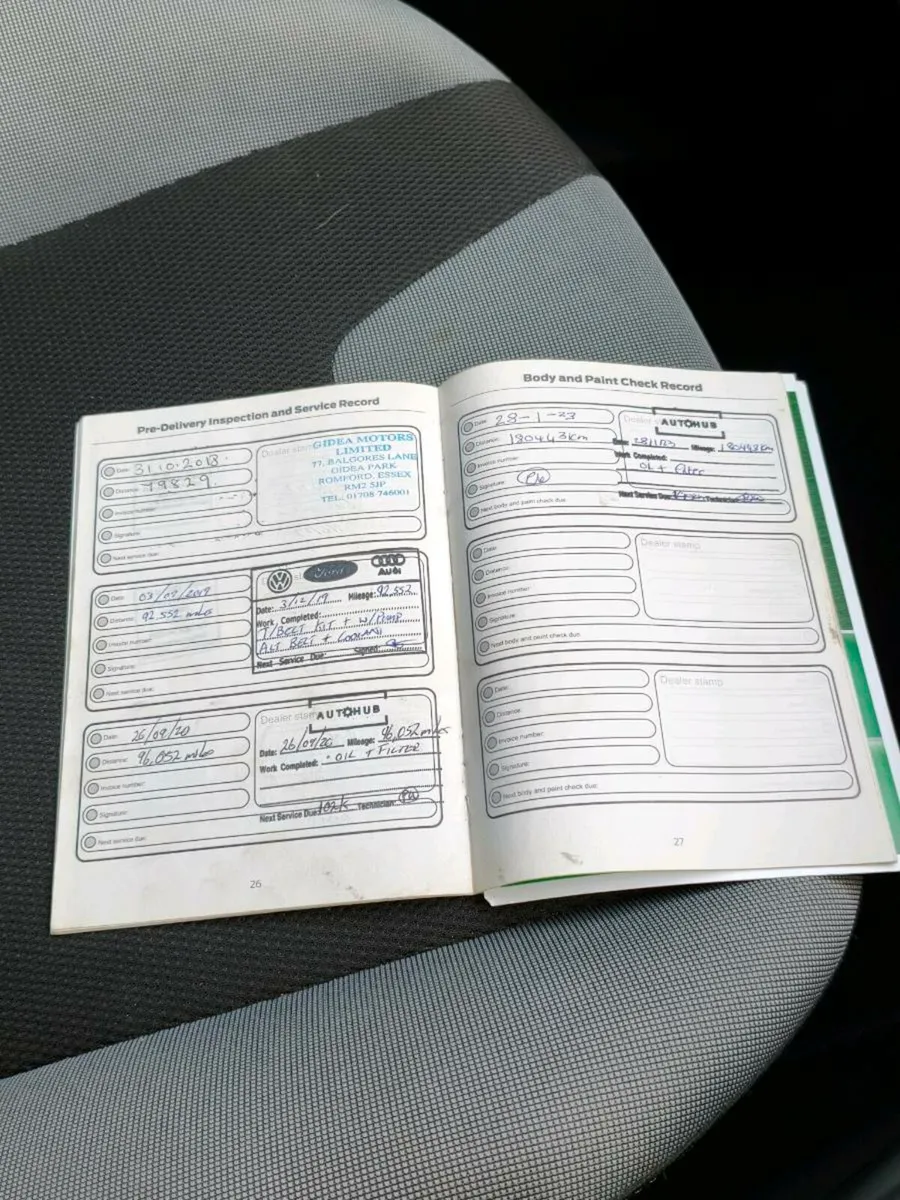 Pre-Delivery Inspection and Service Record
Date: 31.10.2018.
Distance: 79829
Invoice number:
Signature:
Next service due:
Dealer stamp
GIDEA MOTORS
LIMITED
77, BALGORES LANE
GIDEA PARK
ROMFORD, ESSEX
RM2 5JP
TEL. 01708 746001
Date: 03/07/2019
Distance: 92 552 miles
Invoice number:
Signature:
Next service due:
Ford
Audi
Date: 3/12/19 Mileage: 92,552
Work Completed:
T/BELT KIT + W/PUMP
ALT BELT + COOLANT
Next Service Due: Signed:
Date: 26/09/20
Distance: 96,052 miles
Invoice number:
Signature:
Next service due:
Dealer stamp
AUTOHUB
Date: 26/09/20 Mileage: 96,052 miles
Work Completed: OIL + FILTER
Next Service Due: 102k Technician: PW
26
Body and Paint Check Record
Date: 28-1-23
Distance: 180443km
Invoice number:
Signature: PW
Next body and paint check due:
Dealer
AUTOHUB
Date: 28/1/23 Mileage: 180443km
Work Completed:
OIL + Filter
Next Service Due: Technician:
Date:
Distance:
Invoice number:
Signature:
Next body and paint check due:
Dealer stamp
Date:
Distance:
Invoice number:
Signature:
Next body and paint check due:
Dealer stamp
27